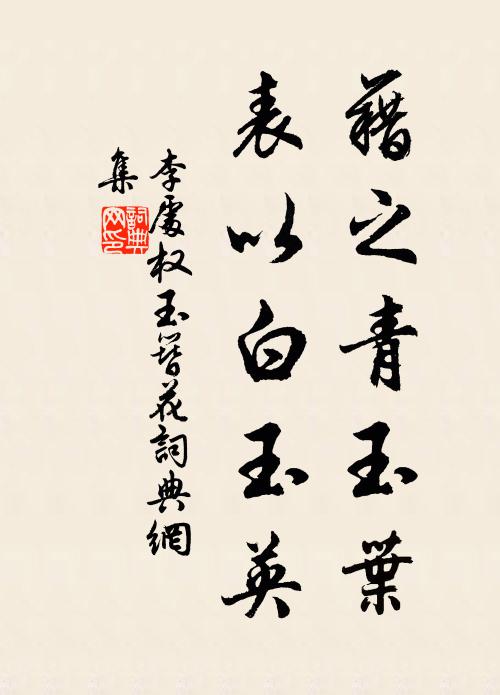 藉之青玉葉
表以白玉英
李處权玉簪花詞典網
集
詞典
网印